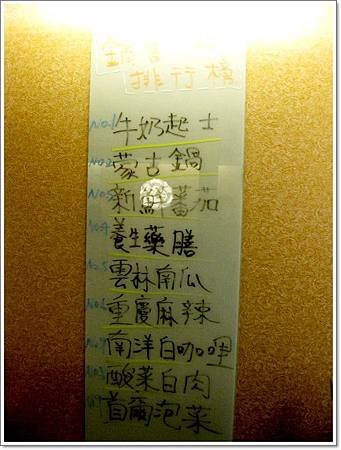 排行榜
No.1 牛奶起士
No.2 蒙古鍋
No.3 新鮮蕃茄
No.4 養生藥膳
No.5 雲林南瓜
No.6 重慶麻辣
No.7 南洋白咖哩
No.8 酸菜白肉
首爾泡菜